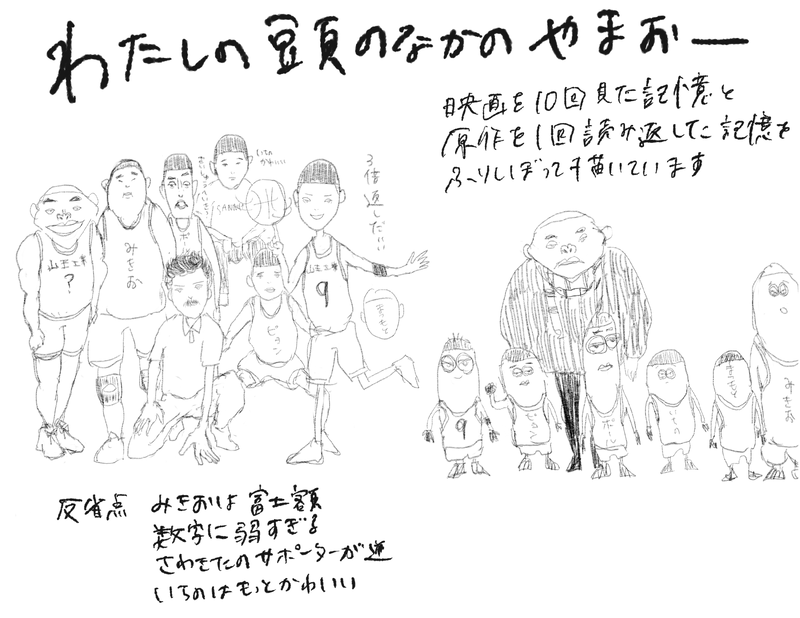 わたしの豆頁のなかの やまおー
映画を10回見た記憶と
原作を1回読み返した記憶を
ふりしぼって描いています
いちの
かわいい
SANNOH
3倍返しだい
山王工業
?
みきお
ポール
山王工業
9
ピョン
きもと
9
ピョン
ポール
いちの
きもと
みきお
反省点 みきおは富士額
数字に弱すぎる
さわきたのサポーターが逆
いちのはもっとかわいい